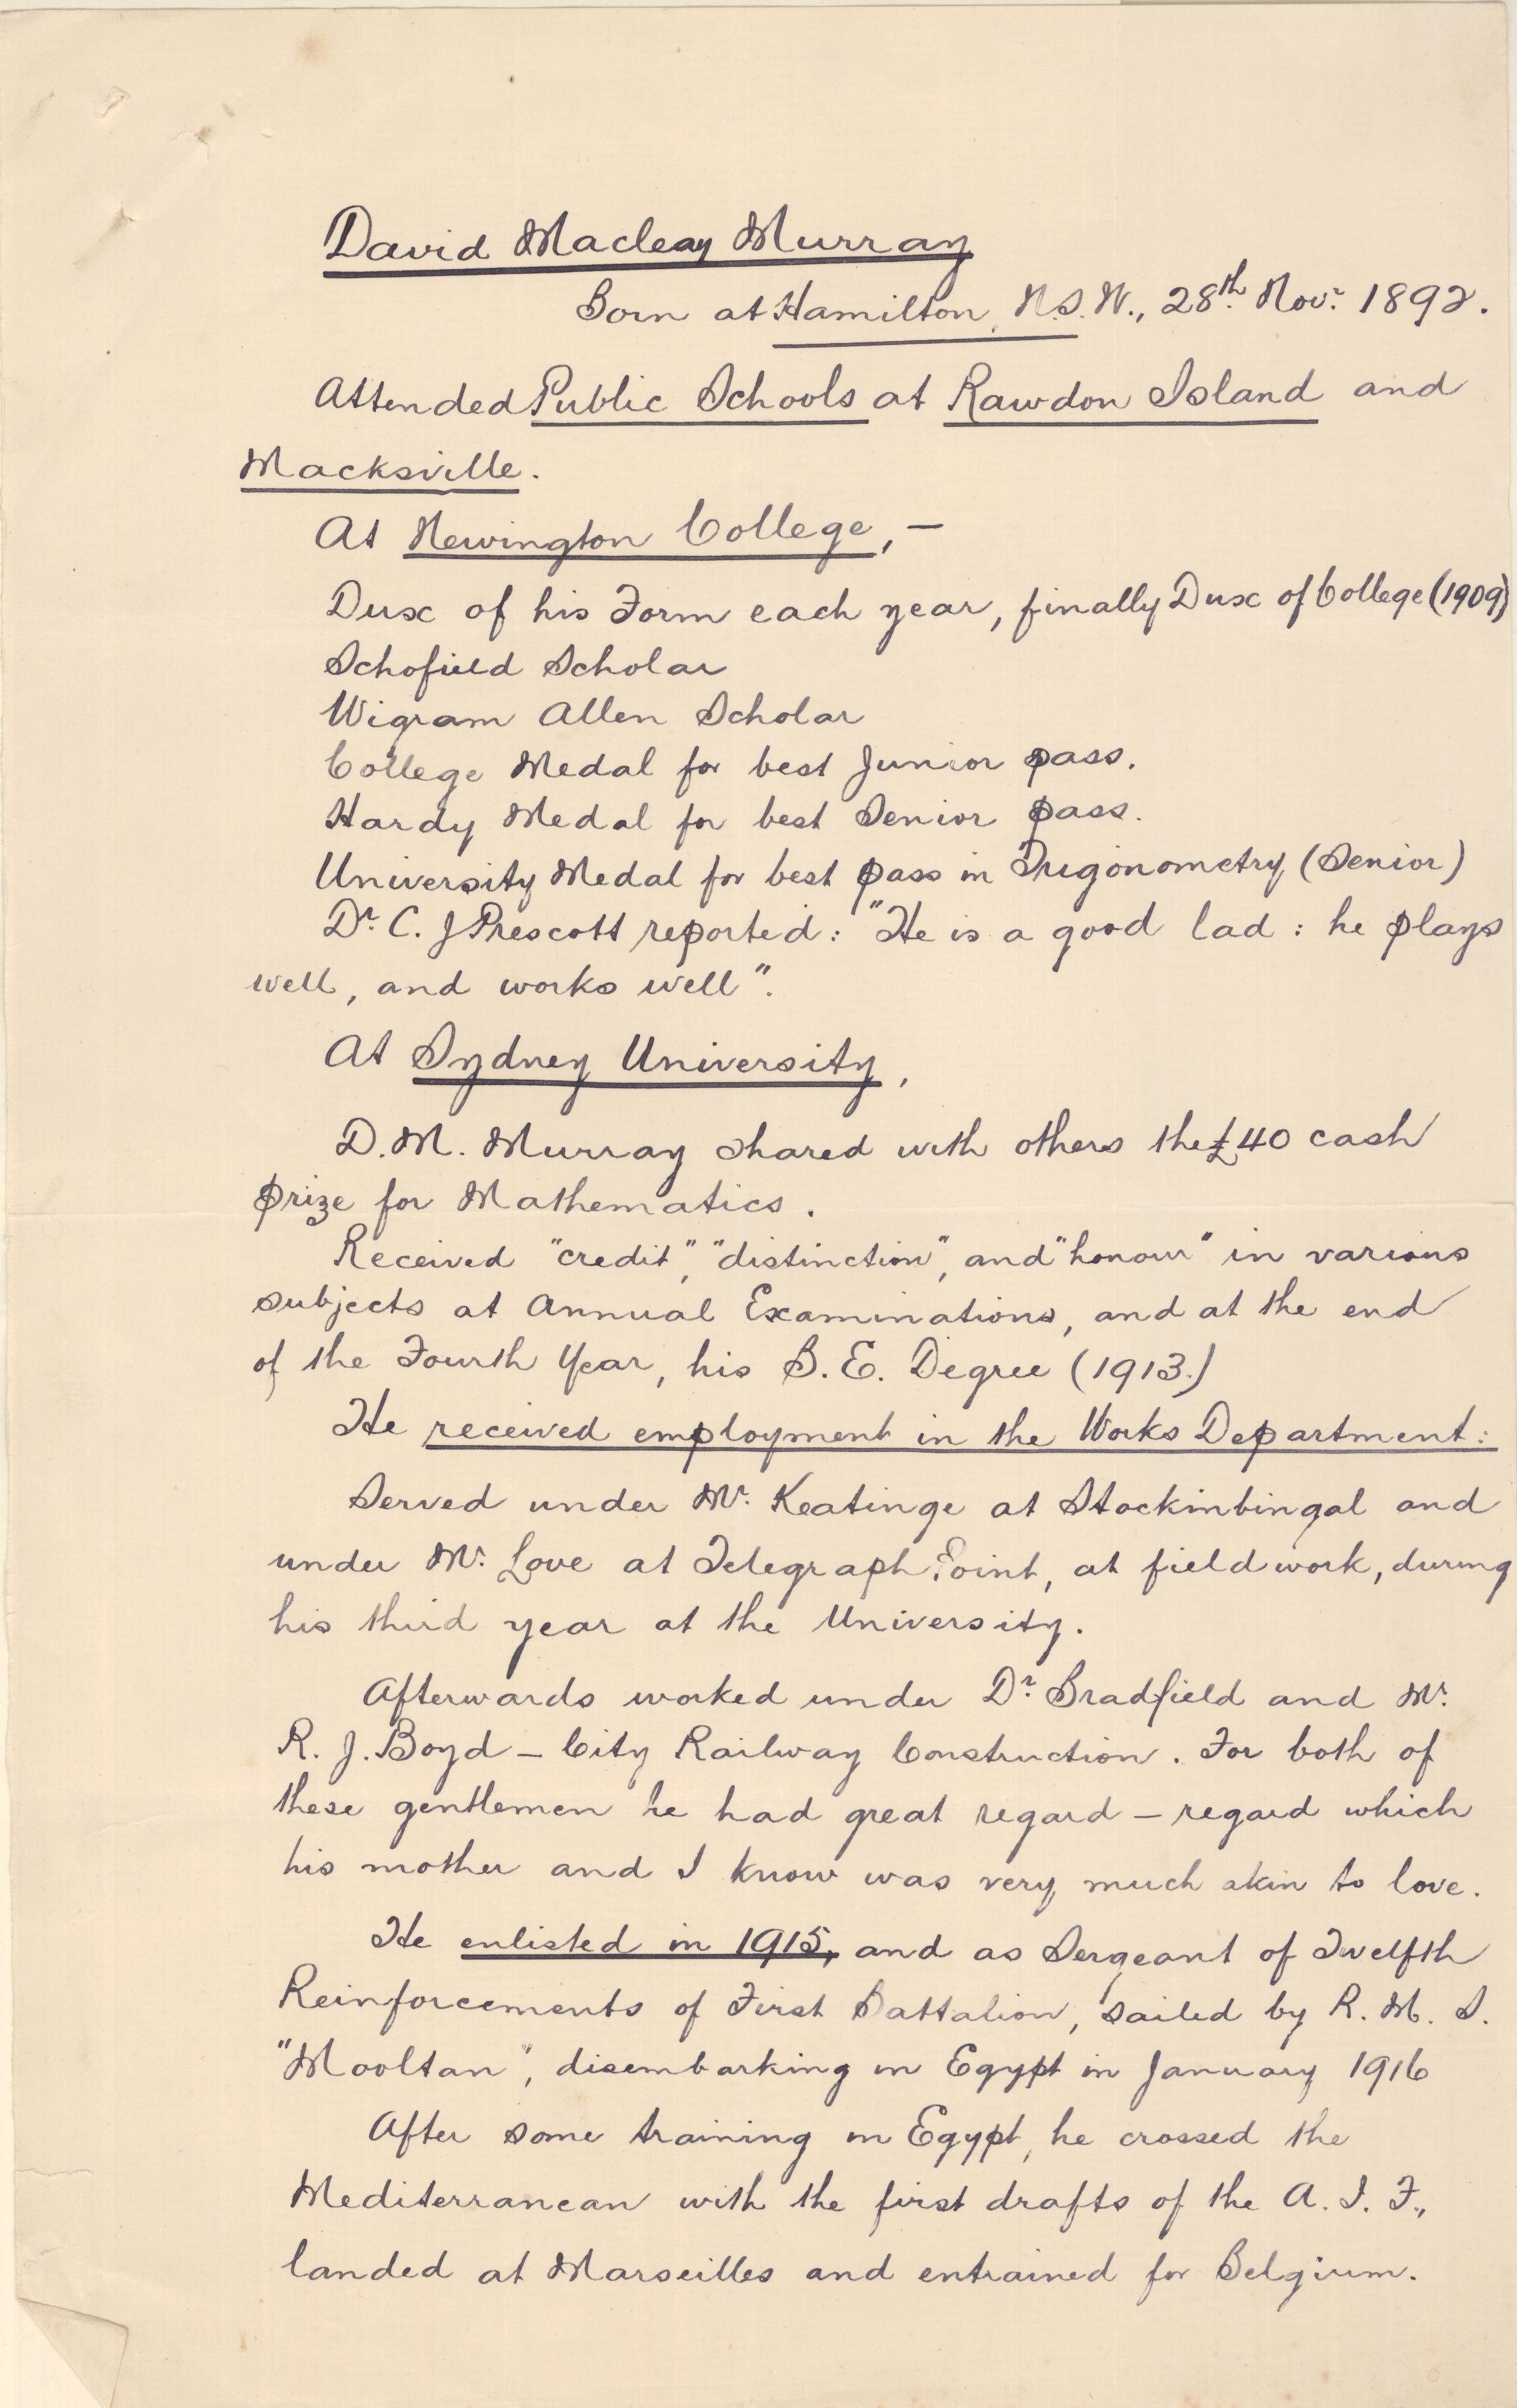 David Macleay Murray
Born at Hamilton, N.S.W., 28th Novr. 1892.
Attended Public Schools at Rawdon Island and
Macksville.
At Newington College, —
Dux of his Form each year, finally Dux of College (1909)
Schofield Scholar
Wigram Allen Scholar
College Medal for best Junior pass.
Hardy Medal for best Senior pass.
University Medal for best pass in Trigonometry (Senior)
Dr. C. J Prescott reported: "He is a good lad: he plays
well, and works well".
At Sydney University,
D.M. Murray shared with others the £40 cash
prize for Mathematics.
Received "credit", "distinction", and "honour" in various
subjects at Annual Examinations, and at the end
of the Fourth Year, his B.E. Degree (1913.)
He received employment in the Works Department:
Served under Mr. Keatinge at Stockinbingal and
under Mr. Love at Telegraph Point, at field work, during
his third year at the University.
Afterwards worked under Dr. Bradfield and Mr.
R. J. Boyd — City Railway Construction. For both of
these gentlemen he had great regard — regard which
his mother and I know was very much akin to love.
He enlisted in 1915, and as Sergeant of Twelfth
Reinforcements of First Battalion, sailed by R. M. S.
"Mooltan", disembarking in Egypt in January 1916
After some training in Egypt, he crossed the
Mediterranean with the first drafts of the A. I. F.,
landed at Marseilles and entrained for Belgium.